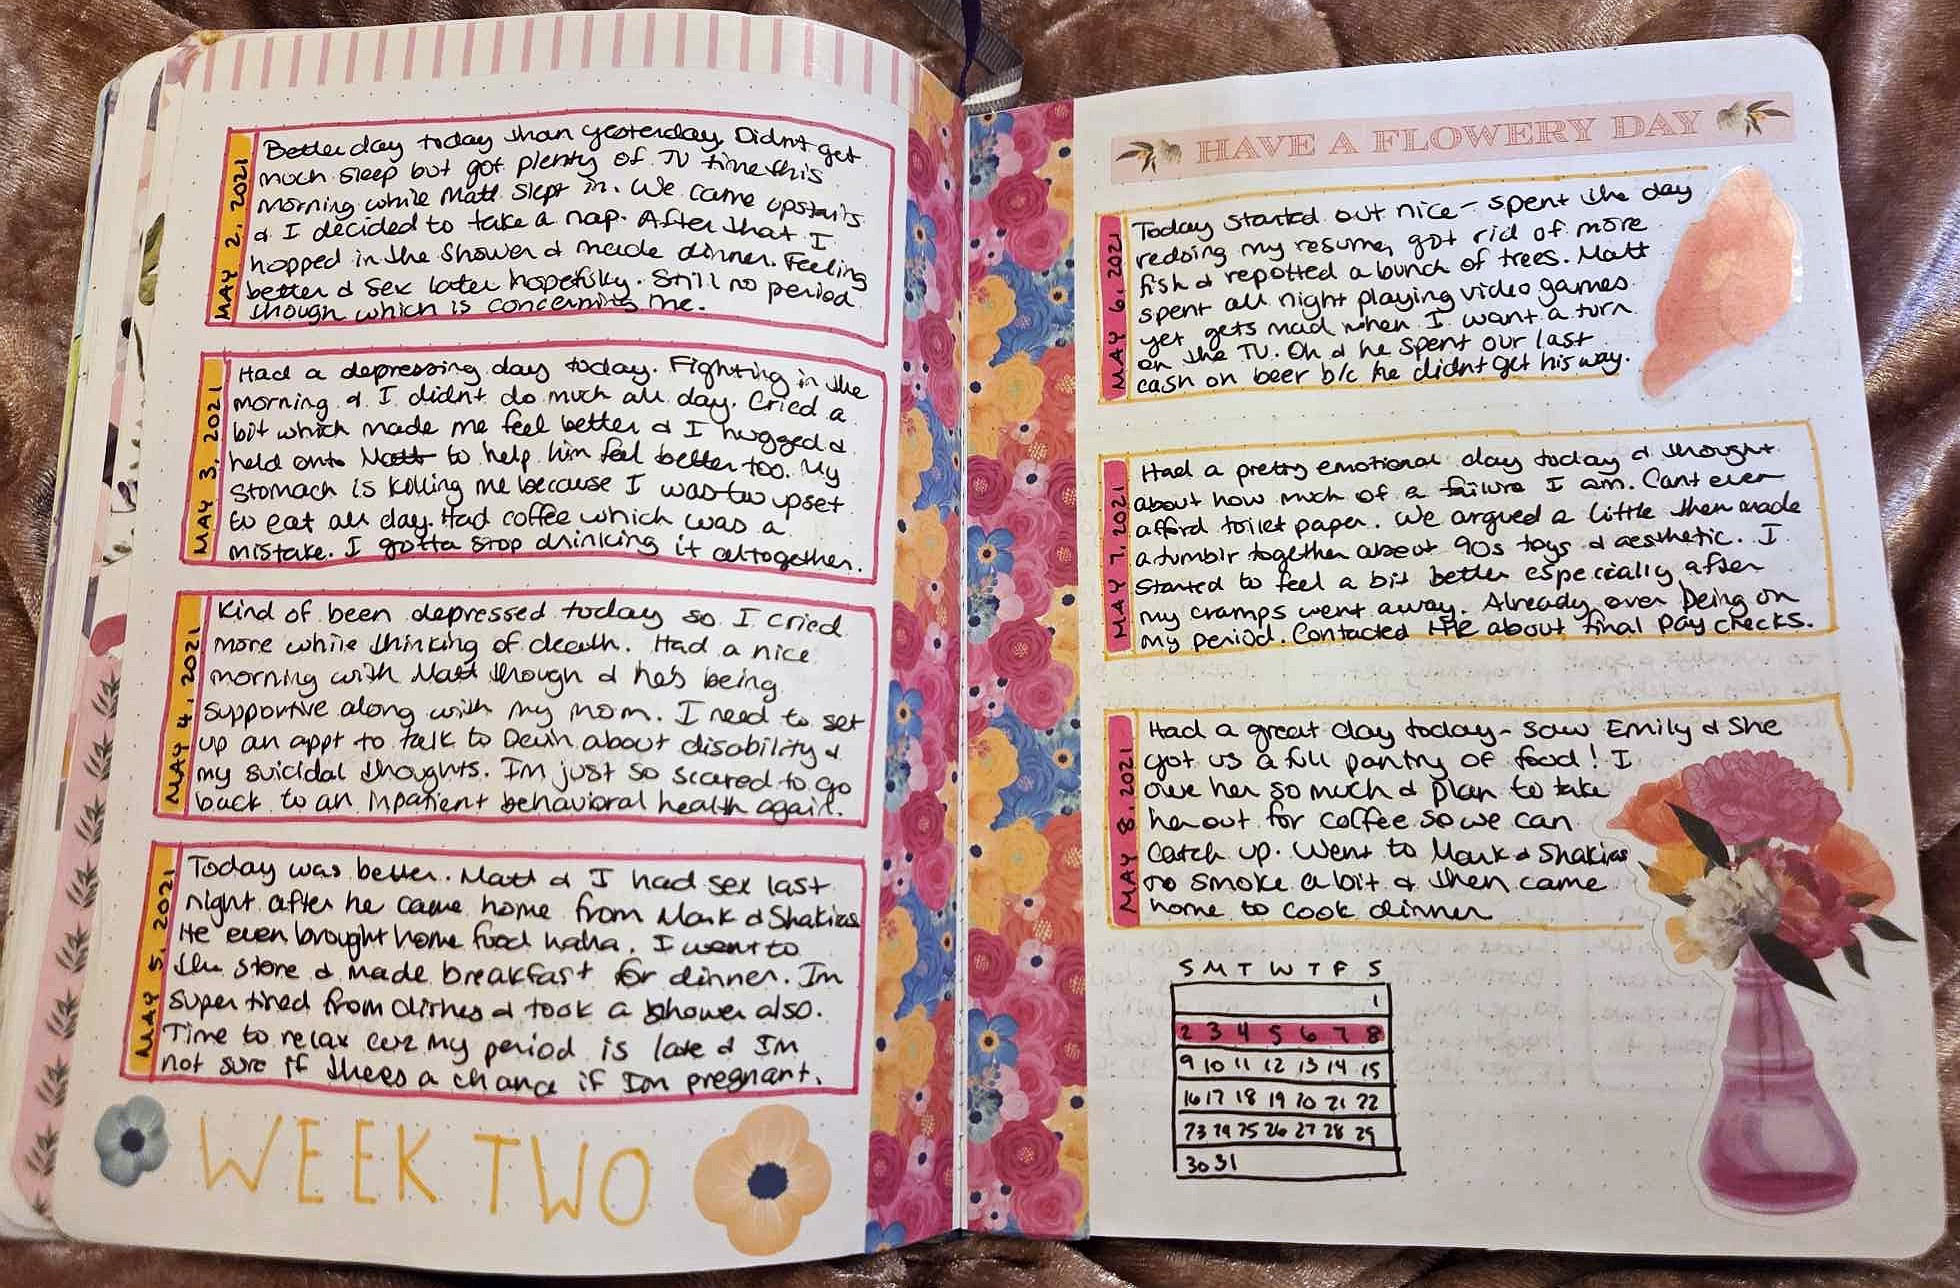 MAY 2, 2021
Better day today than yesterday. Didnt get
much sleep but got plenty of TV time this
morning while Matt slept in. We came upstairs
& I decided to take a nap. After that I
hopped in the shower & made dinner. Feeling
better & sex later hopefully. Still no period
though which is concerning me.
MAY 3, 2021
Had a depressing day today. Fighting in the
morning & I didnt do much all day. Cried a
bit which made me feel better & I hugged &
held onto Matt to help him feel better too. My
stomach is killing me because I was too upset
to eat all day. Had coffee which was a
mistake. I gotta stop drinking it altogether.
MAY 4, 2021
Kind of been depressed today so I cried
more while thinking of death. Had a nice
morning with Matt though & hes being
supportive along with my mom. I need to set
up an appt to talk to Devin about disability &
my suicidal thoughts. Im just so scared to go
back to an inpatient behavioral health again.
MAY 5, 2021
Today was better. Matt & I had sex last
night after he came home from Mark & Shakiras
He even brought home food haha. I went to
the store & made breakfast for dinner. Im
super tired from dishes & took a shower also.
Time to relax cuz my period is late & Im
not sure if theres a chance if Im pregnant.
WEEK TWO
HAVE A FLOWERY DAY
MAY 6, 2021
Today started out nice - spent the day
redoing my resume, got rid of more
fish & repotted a bunch of trees. Matt
spent all night playing video games
yet gets mad when I want a turn
on the TV. Oh & he spent our last
cash on beer b/c he didnt get his way.
MAY 7, 2021
Had a pretty emotional day today & thought
about how much of a failure I am. Cant even
afford toilet paper. We argued a little then made
a tumblr together about 90s toys & aesthetic. I
started to feel a bit better especially after
my cramps went away. Already over being on
my period. Contacted HR about final pay checks.
MAY 8, 2021
Had a great day today - saw Emily & she
got us a full pantry of food! I
owe her so much & plan to take
her out for coffee so we can
catch up. Went to Mark & Shakiras
to smoke a bit & then came
home to cook dinner
S M T W T F S
1
2 3 4 5 6 7 8
9 10 11 12 13 14 15
16 17 18 19 20 21 22
23 24 25 26 27 28 29
30 31